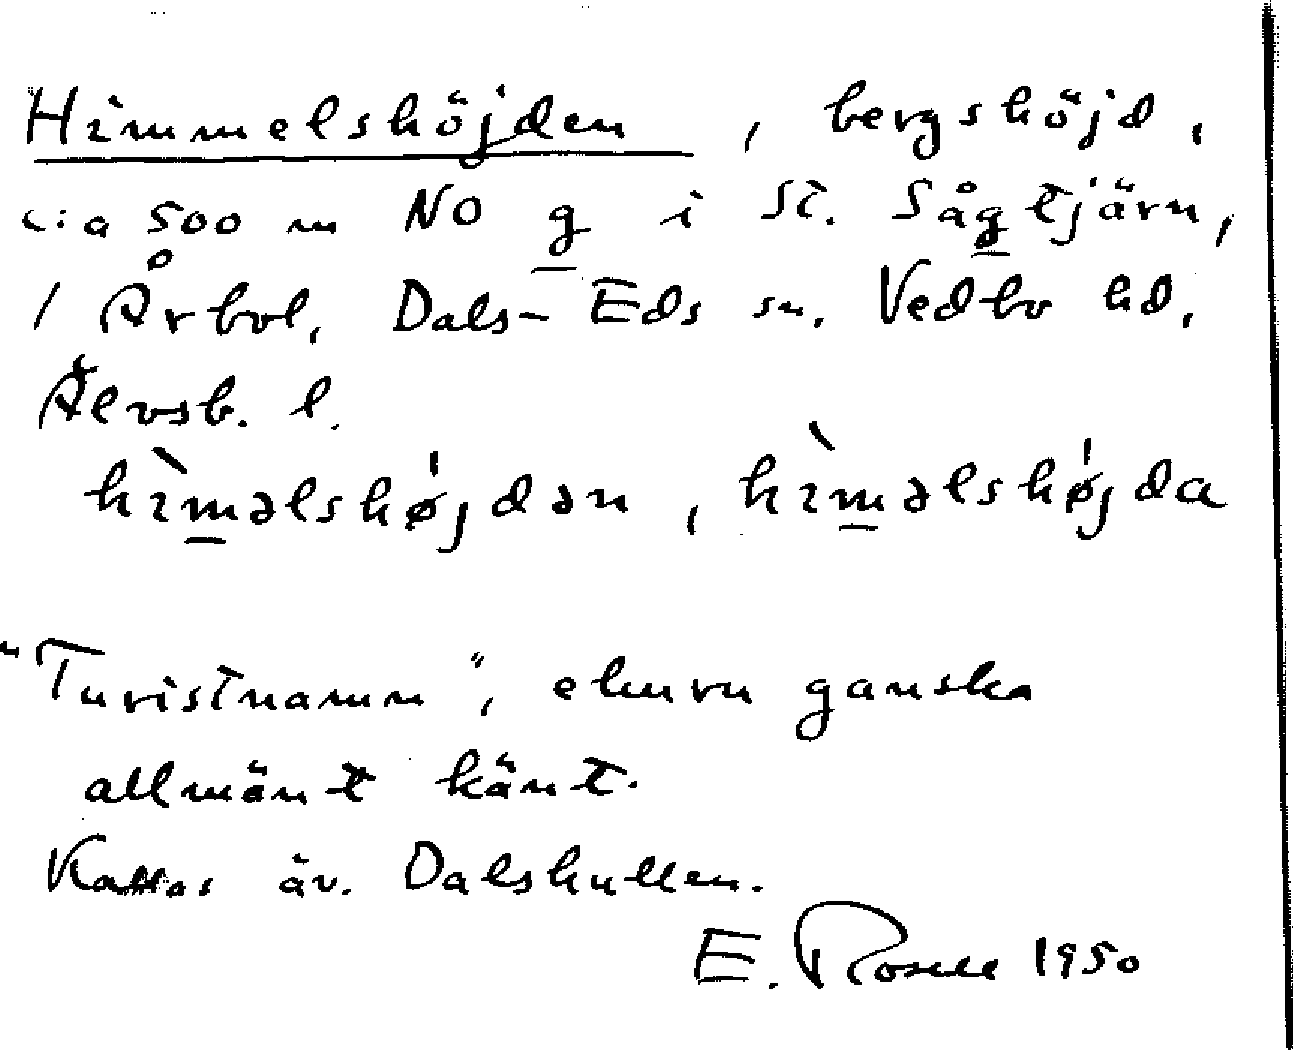 Himmelshöjden, bergshöjd,
c:a 500 m NO g i St. Sågtjärn,
/ Årbol, Dals-Eds sn. Vedbo hd,
Älvsb. l.
hìməlshø̍jdən, hìməlshø̍jda
"Turistnamn", ehuru ganska
allmänt känt.
Kallas äv. Dalskullen.
E. Rosell 1950